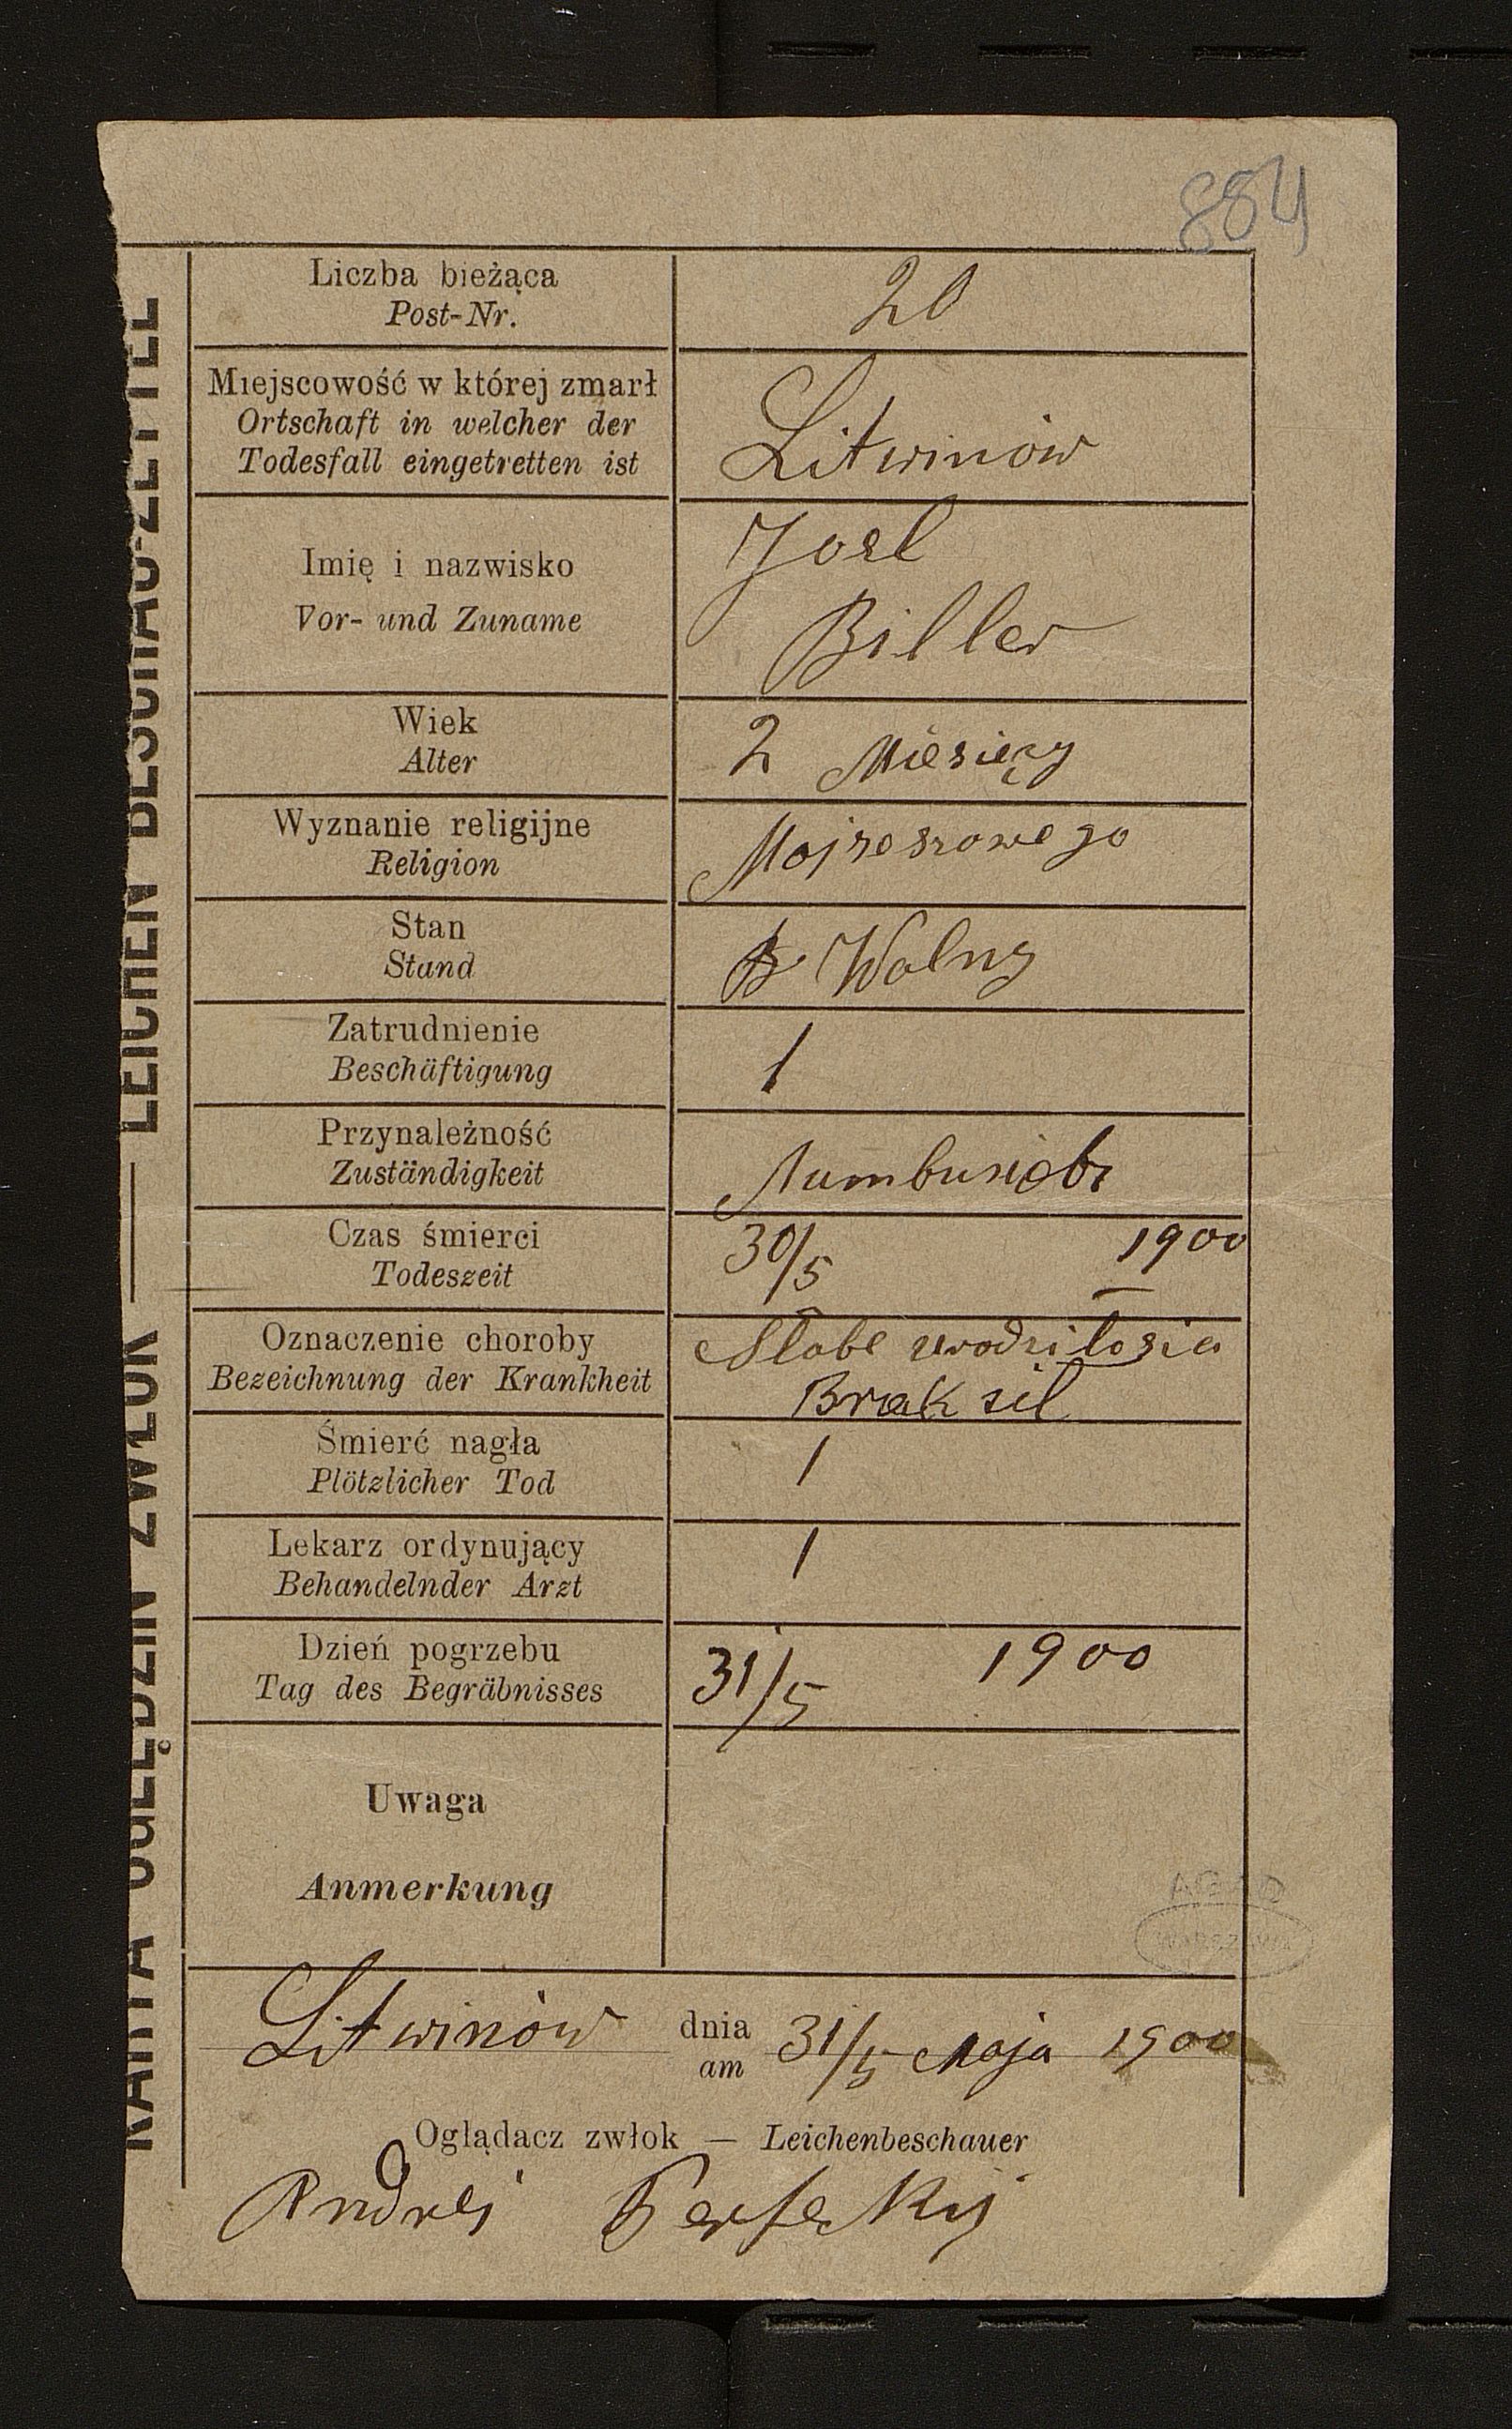 884
KARTA OGLĘDZIN ZWŁOK — LEICHEN BESCHAU-ZETTEL
Liczba bieżąca
Post-Nr.
20
Miejscowość w której zmarł
Ortschaft in welcher der
Todesfall eingetretten ist
Litwinów
Imię i nazwisko
Vor- und Zuname
Josl
Biller
Wiek
Alter
2 Miesięcy
Wyznanie religijne
Religion
Mojzeszowego
Stan
Stand
Wolny
Zatrudnienie
Beschäftigung
/
Przynależność
Zuständigkeit
Czas śmierci
Todeszeit
30/5 1900
Oznaczenie choroby
Bezeichnung der Krankheit
Słabe urodziłosia
Brak sil
Śmierć nagła
Plötzlicher Tod
/
Lekarz ordynujący
Behandelnder Arzt
/
Dzień pogrzebu
Tag des Begräbnisses
31/5 1900
Uwaga
Anmerkung
AGAD
WARSZAWA
Litwinów dnia 31/5 Maja 1900
am
Oglądacz zwłok — Leichenbeschauer
Andrej